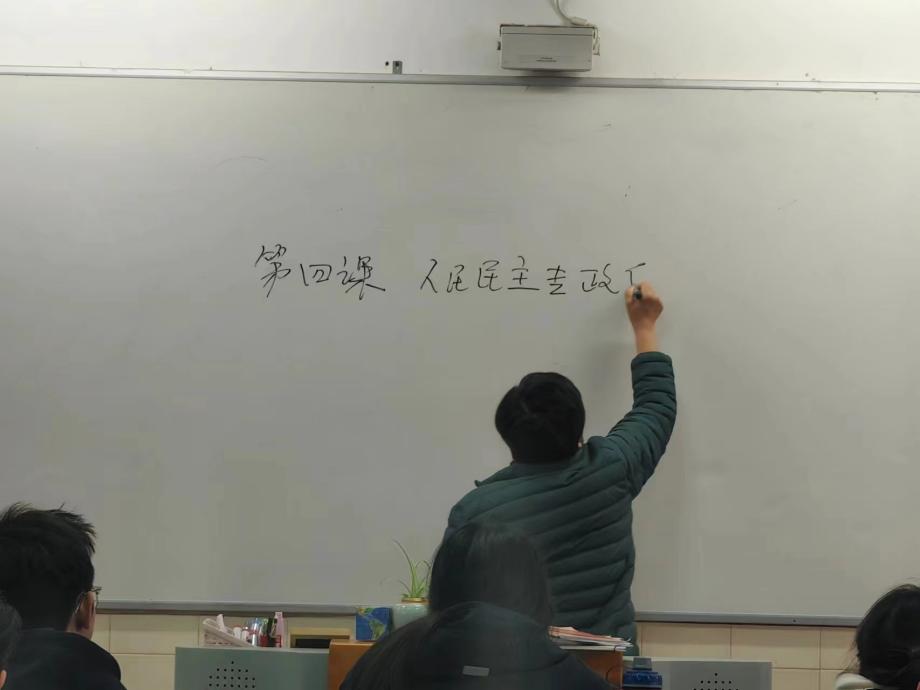 第四课 人民民主专政